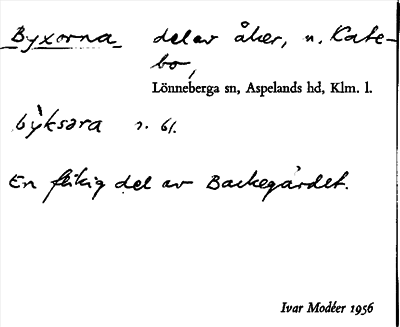 Byxorna del av åker, n. Kate-
bo,
Lönneberga sn, Aspelands hd, Klm. l.
bỳksəra s. 61.
En flikig del av Backegärdet.
Ivar Modéer 1956